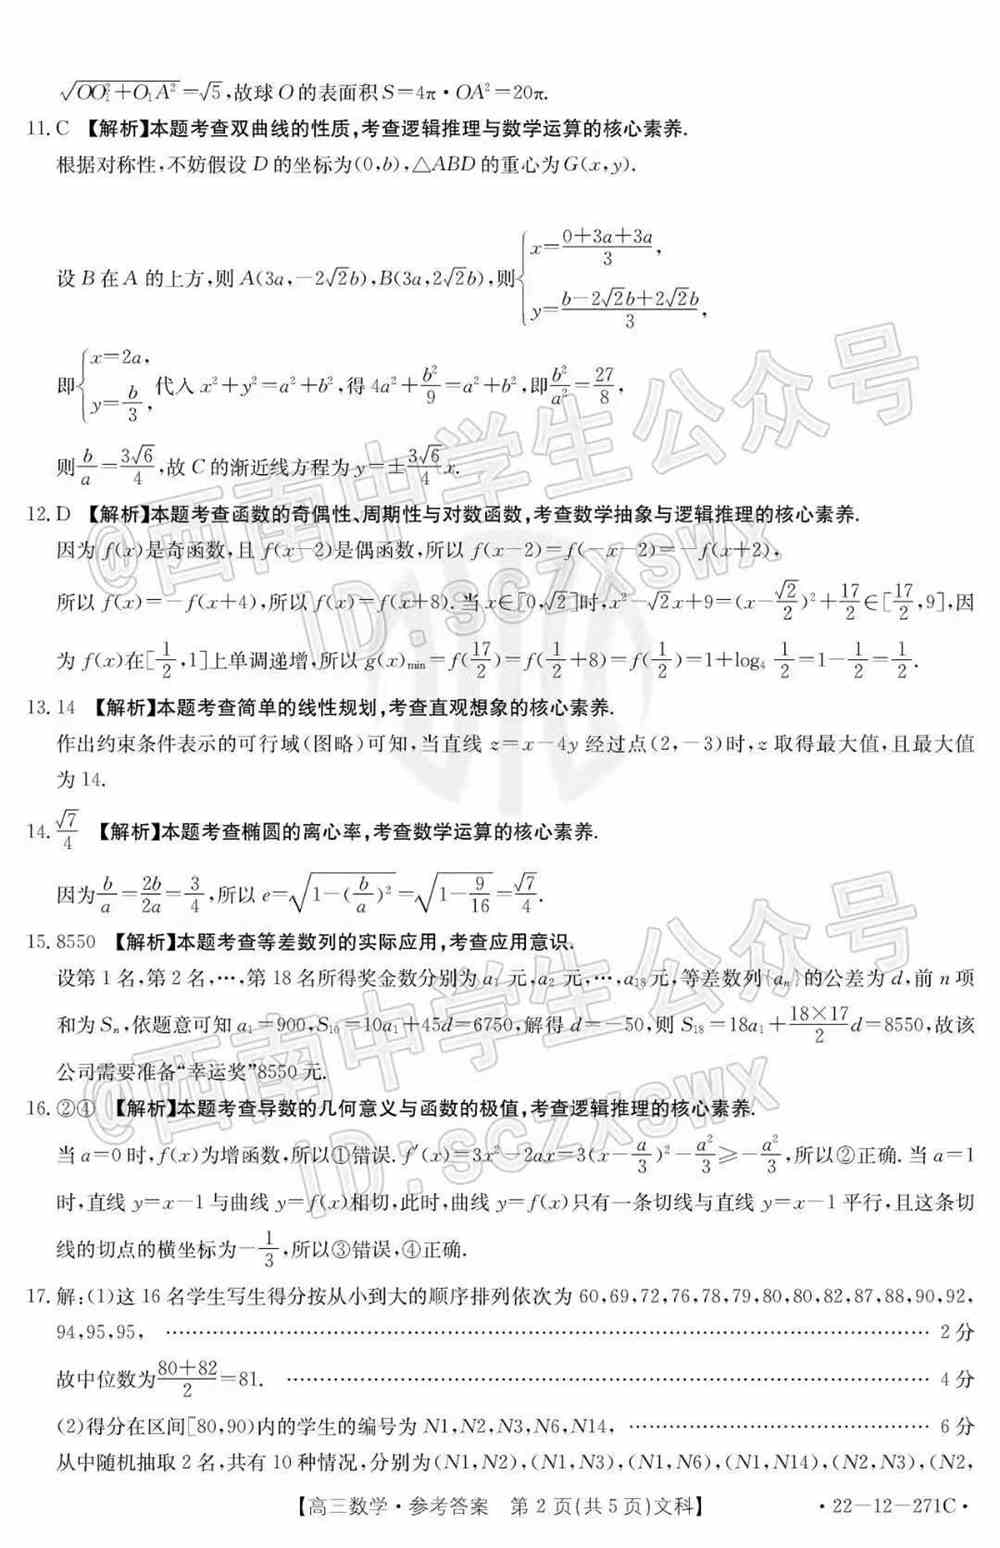 √(OO₁²+O₁A²)=√5,故球O的表面积S=4π·OA²=20π.
11. C 【解析】本题考查双曲线的性质,考查逻辑推理与数学运算的核心素养.
根据对称性,不妨假设D的坐标为(0,b),△ABD的重心为G(x,y).
设B在A的上方,则A(3a,-2√2b),B(3a,2√2b),则{x=(0+3a+3a)/3, y=(b-2√2b+2√2b)/3,
即{x=2a, y=b/3, 代入x²+y²=a²+b²,得4a²+b²/9=a²+b²,即b²/a²=27/8,
则b/a=3√6/4,故C的渐近线方程为y=±(3√6/4)x.
12. D 【解析】本题考查函数的奇偶性、周期性与对数函数,考查数学抽象与逻辑推理的核心素养.
因为f(x)是奇函数,且f(x-2)是偶函数,所以f(x-2)=f(-x-2)=-f(x+2),
所以f(x)=-f(x+4),所以f(x)=f(x+8).当x∈[0,√2]时,x²-√2x+9=(x-√2/2)²+17/2∈[17/2,9],因
为f(x)在[1/2,1]上单调递增,所以g(x)min=f(17/2)=f(1/2+8)=f(1/2)=1+log₄ 1/2=1-1/2=1/2.
13. 14 【解析】本题考查简单的线性规划,考查直观想象的核心素养.
作出约束条件表示的可行域(图略)可知,当直线z=x-4y经过点(2,-3)时,z取得最大值,且最大值
为14.
14. √7/4 【解析】本题考查椭圆的离心率,考查数学运算的核心素养.
因为b/a=2b/2a=3/4,所以e=√(1-(b/a)²)=√(1-9/16)=√7/4.
15. 8550 【解析】本题考查等差数列的实际应用,考查应用意识.
设第1名,第2名,…,第18名所得奖金数分别为a₁元,a₂元,…,a₁₈元,等差数列{aₙ}的公差为d,前n项
和为Sₙ,依题意可知a₁=900,S₁₀=10a₁+45d=6750,解得d=-50,则S₁₈=18a₁+(18×17)/2 d=8550,故该
公司需要准备“幸运奖”8550元.
16. ②④ 【解析】本题考查导数的几何意义与函数的极值,考查逻辑推理的核心素养.
当a=0时,f(x)为增函数,所以①错误.f′(x)=3x²-2ax=3(x-a/3)²-a²/3≥-a²/3,所以②正确.当a=1
时,直线y=x-1与曲线y=f(x)相切,此时,曲线y=f(x)只有一条切线与直线y=x-1平行,且这条切
线的切点的横坐标为-1/3,所以③错误,④正确.
17. 解:(1)这16名学生写生得分按从小到大的顺序排列依次为60,69,72,76,78,79,80,80,82,87,88,90,92,
94,95,95, …… 2分
故中位数为(80+82)/2=81. …… 4分
(2)得分在区间[80,90)内的学生的编号为N1,N2,N3,N6,N14, …… 6分
从中随机抽取2名,共有10种情况,分别为(N1,N2),(N1,N3),(N1,N6),(N1,N14),(N2,N3),(N2,
【高三数学·参考答案 第2页(共5页)文科】 ·22-12-271C·
@西南中学生公众号
ID:SCZXSWX
@西南中学生公众号
ID:SCZXSWX